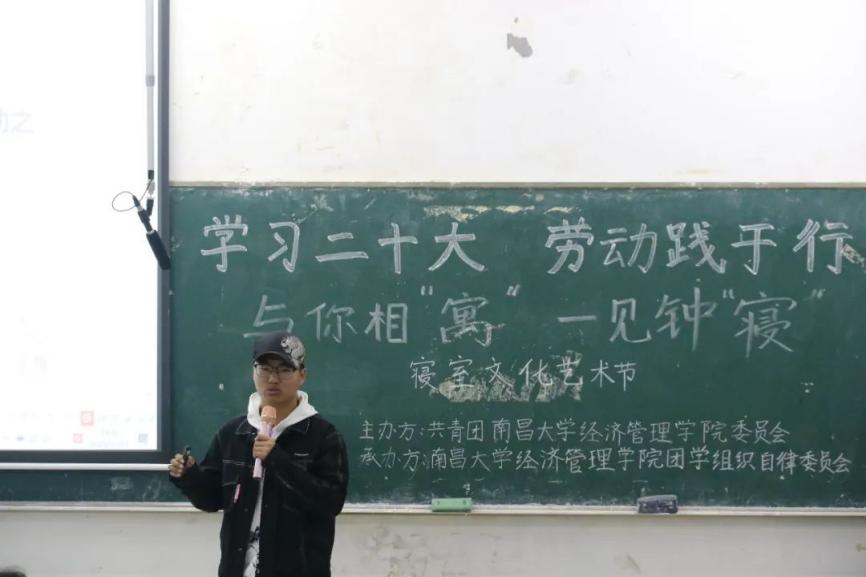 学习二十大 劳动践于行
与你相“寓” 一见钟“寝”
寝室文化艺术节
主办方:共青团南昌大学经济管理学院委员会
承办方:南昌大学经济管理学院团学组织自律委员会